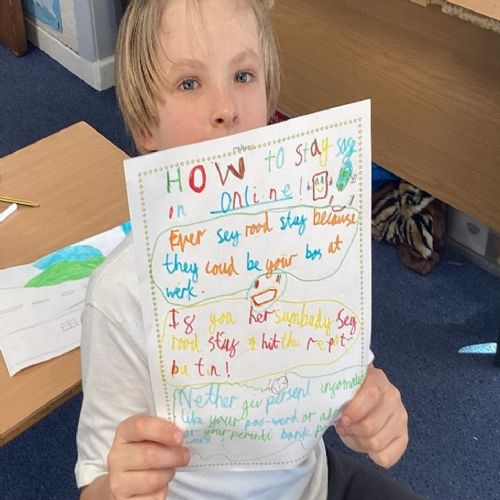 HOW to stay safe
on online!
Ever sey rood stuy because
they coud be your bos at
werk.
If you her sumbady sey
rood stuy & hit the repot
butin!
Nether giv persenl
like your pas-werd or
or your perenti bank